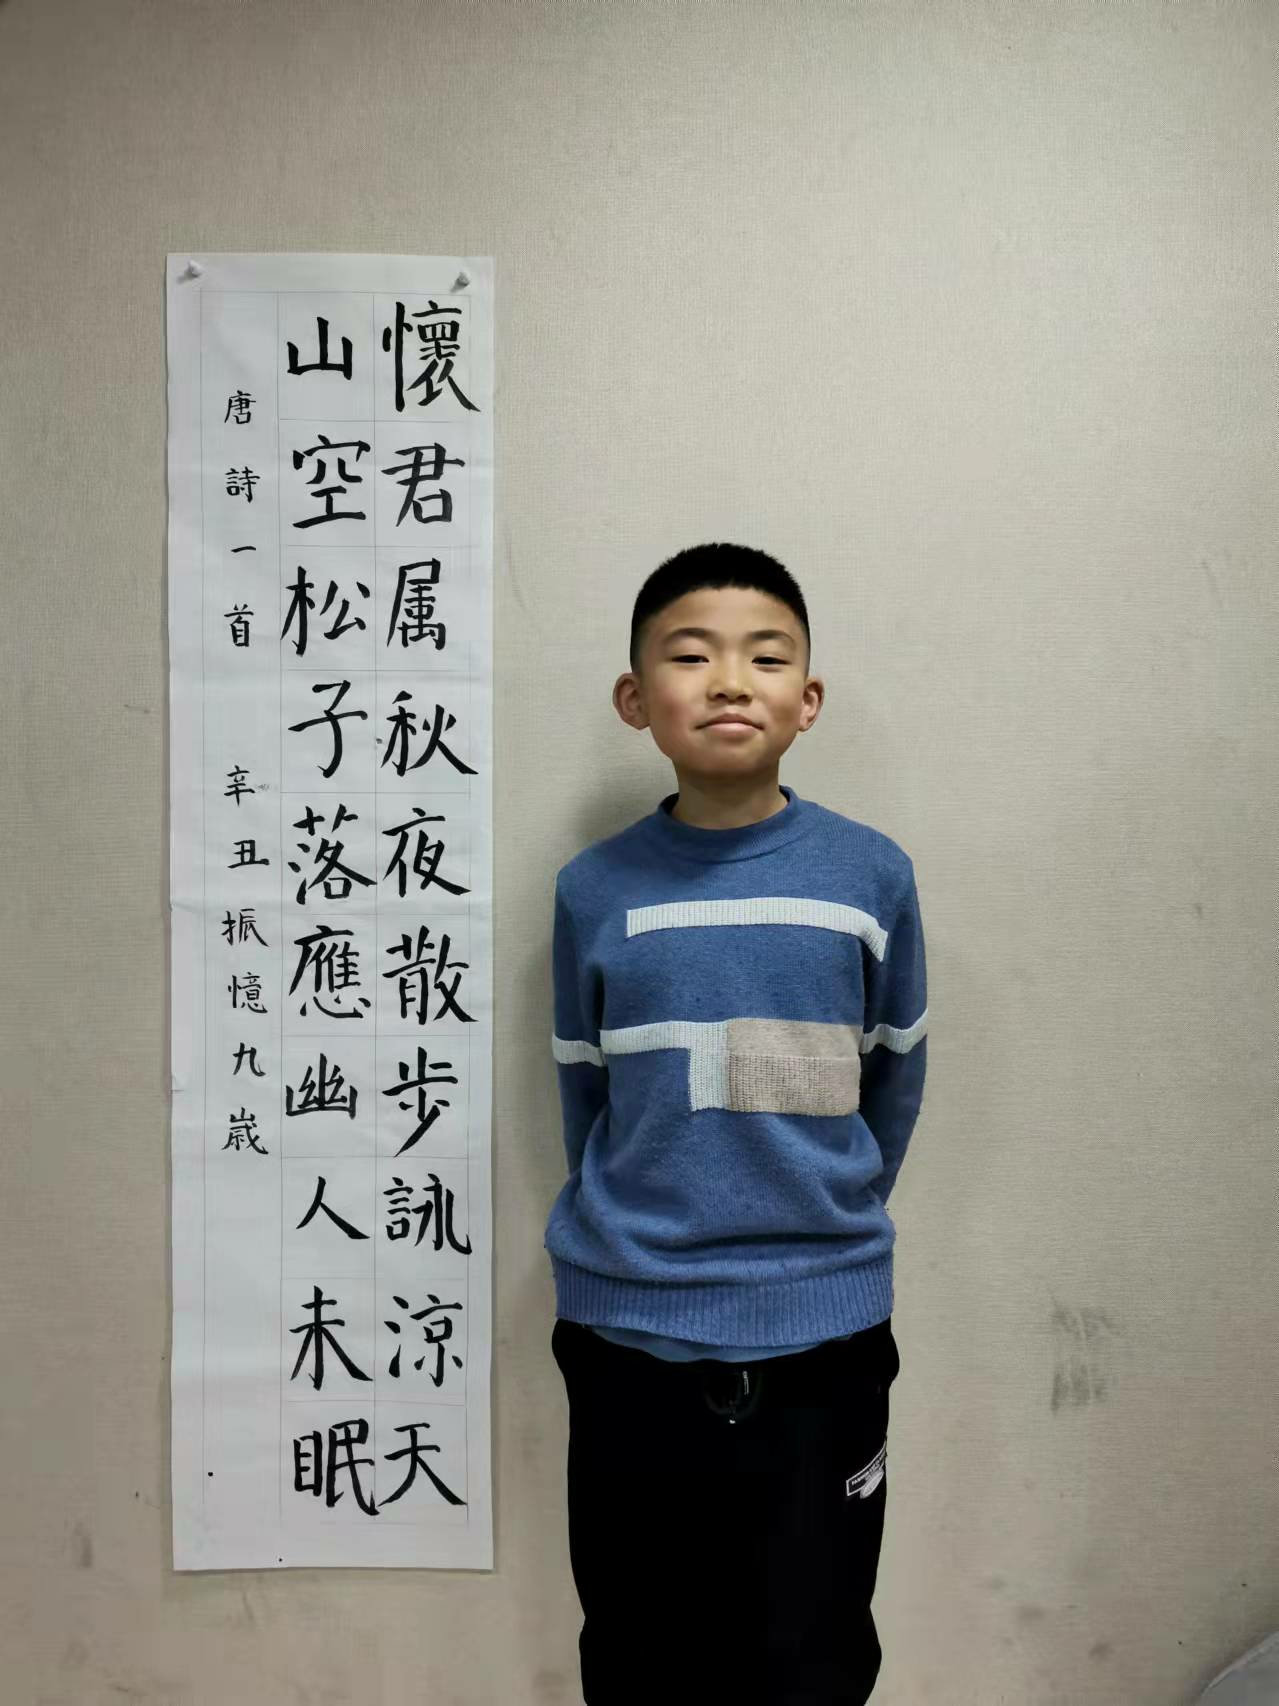 懷君属秋夜散步詠涼天
山空松子落應幽人未眠
唐詩一首 辛丑振憶九歲